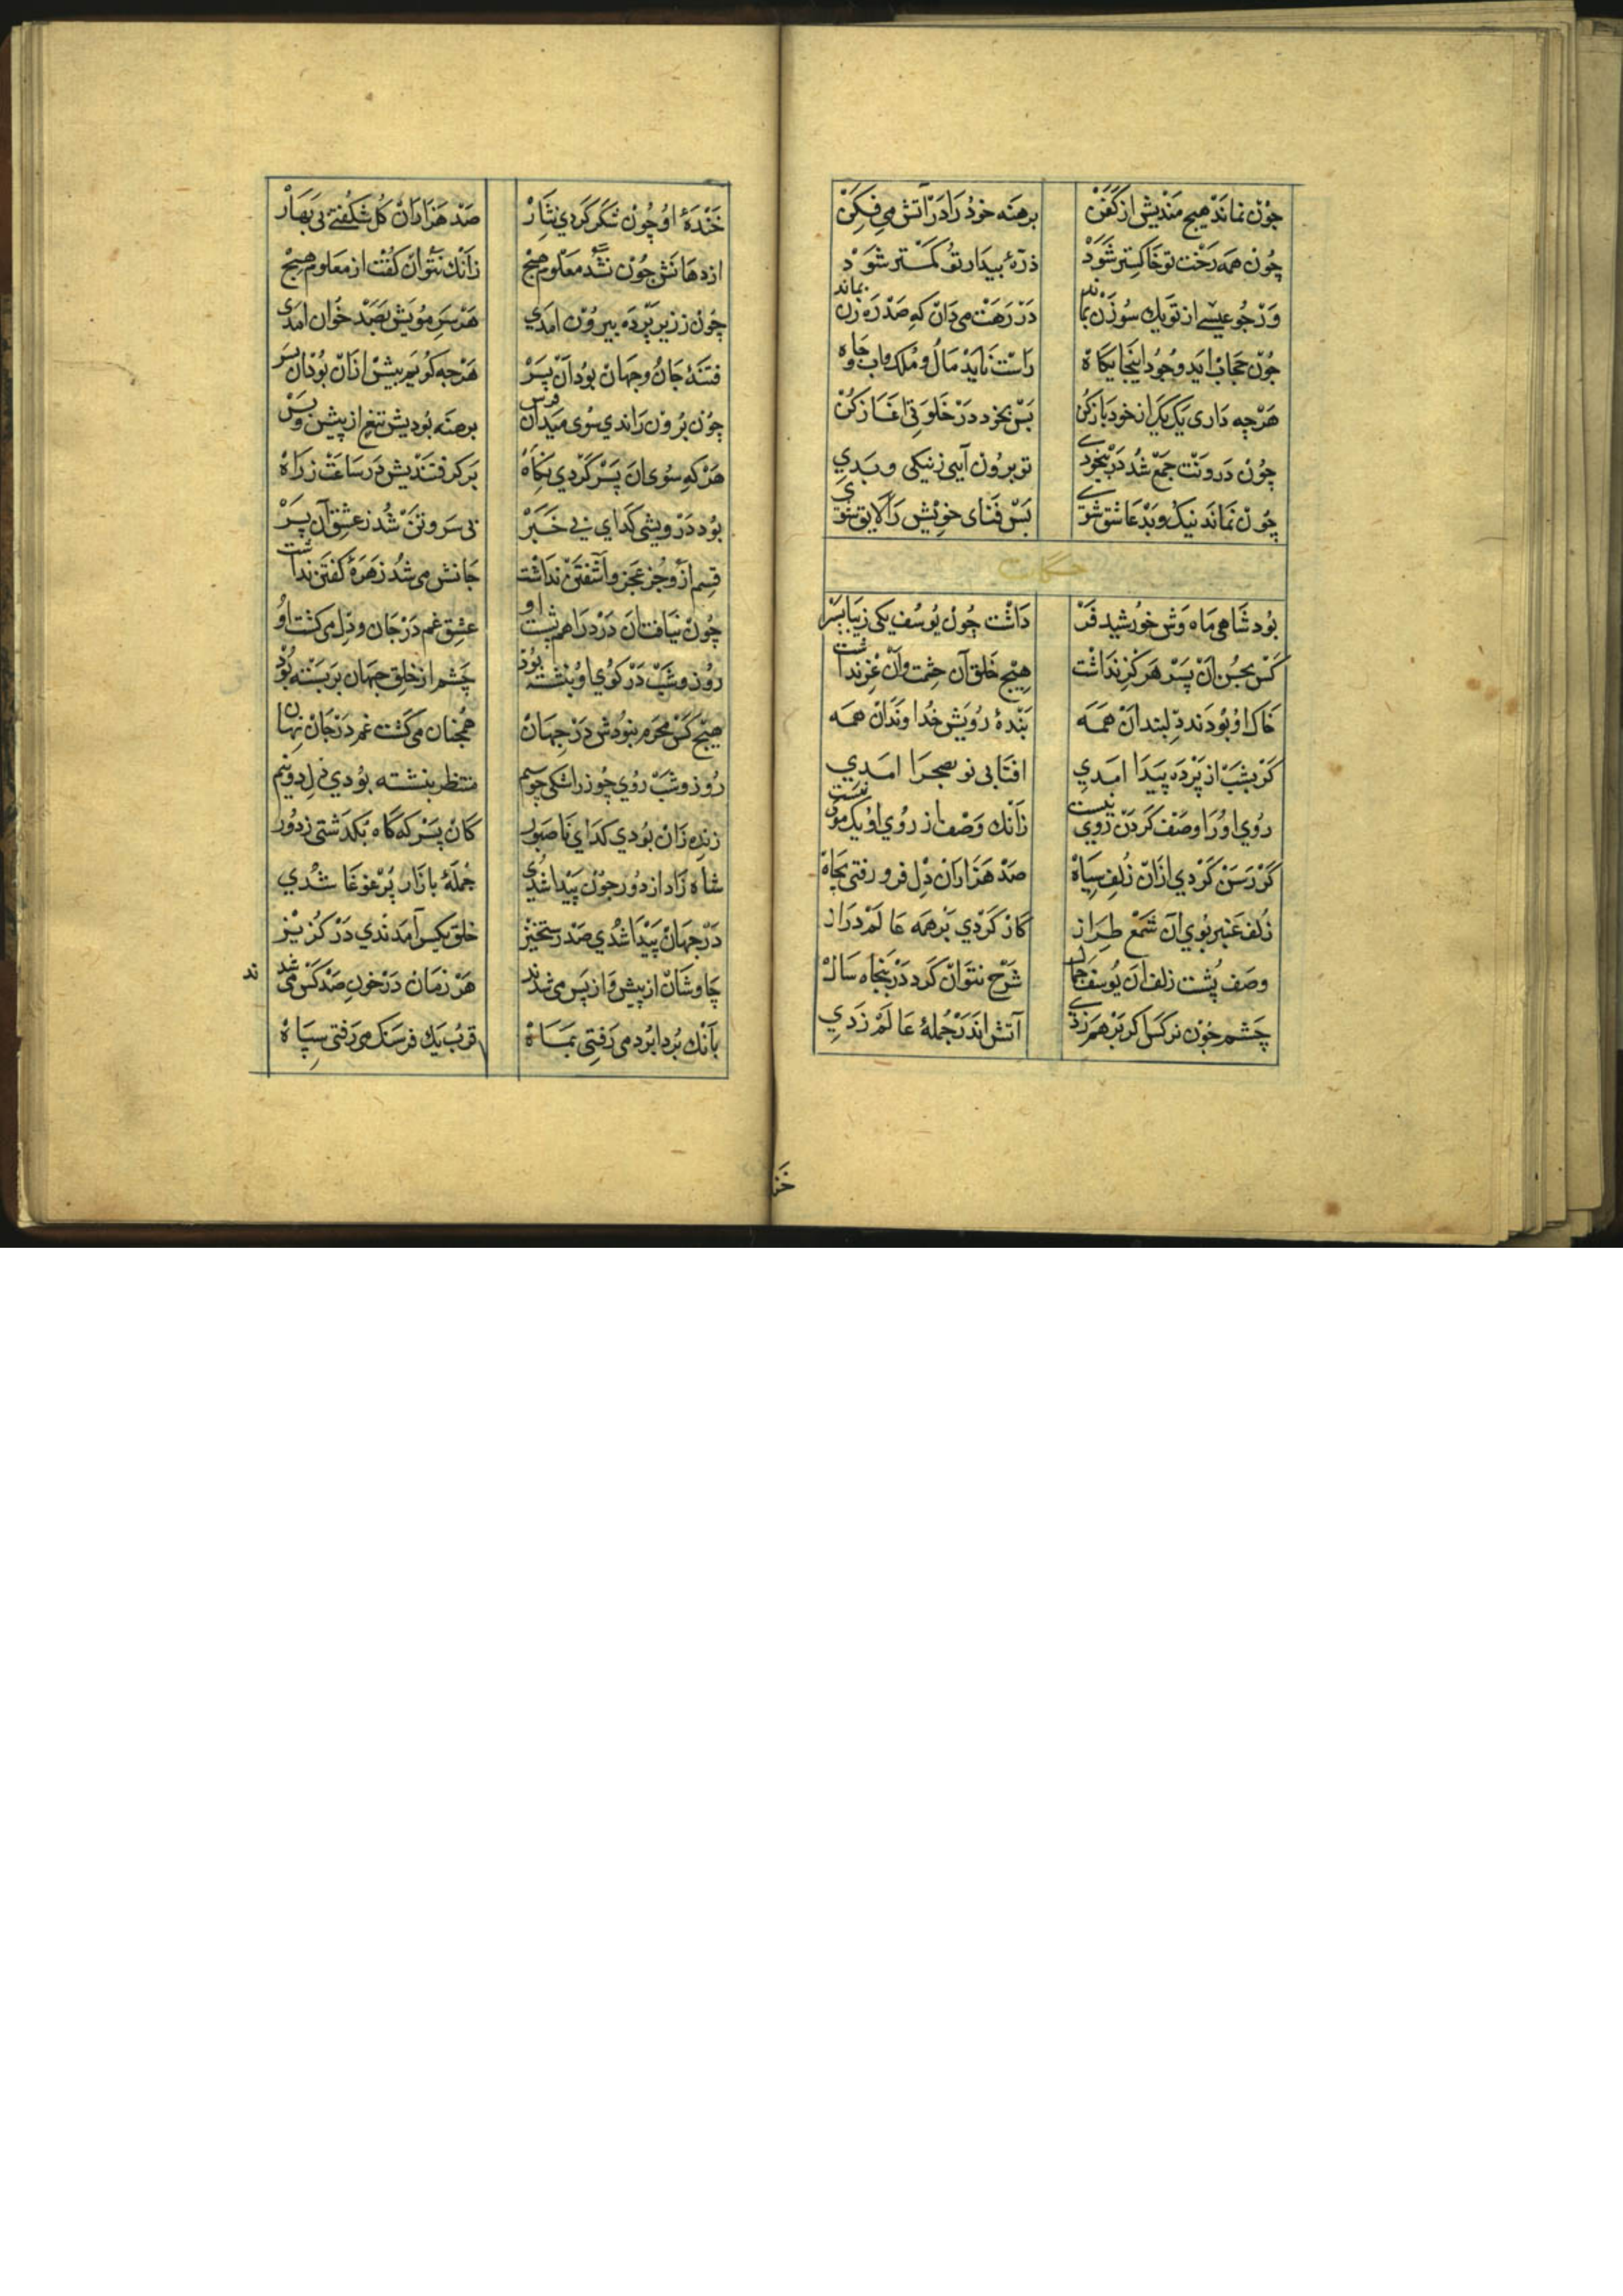 چون نماند هیچ مندیش از کفن برهنه خود را در آتش می فکن
چون همه رخت تو خاکستر شود ذرهٔ بیدار تو کمتر شود
ور چو عیسی از تو یک سوزن بماند در رهت می دان که صد ره زن بماند
چون حجاب اید وجود اینجایکاه راست ناید مال و ملک و آب و جاه
هرچه داری یک یک از خود باز کن بس بخود در خلوتی اغاز کن
چون درونت جمع شد در بیخودی تو برون آیی ز نیکی و بدی
چون نماند نیک و بد عاشق شوی بس فنای خویش را لایق شوی
حکایت
بود شاهی ماه وش خورشید فر داشت چون یوسف یکی زیبا پسر
کس بحسن ان پسر هرگز نداشت هیچ خلق آن حشمت و آن عز نداشت
خاک او بودند دلبندان همه بندهٔ رویش خداوندان همه
کر بشب از پرده پیدا امدی افتابی نو بصحرا امدی
روی او را وصف کردن روی نیست زانک وصف از روی او یک موی نیست
گر رسن کردی ازان زلف سیاه صد هزاران دل فرو رفتی بچاه
زلف عنبر بوی آن شمع طراز کار کردی بر همه عالم دراز
وصف پشت زلف ان یوسف جمال شرح نتوان کرد در پنجاه سال
چشم چون نرکس اکر بر هم زدی آتش اندر جملهٔ عالم زدی
خند
خندهٔ او چون شکر کردی نثار صد هزاران کل شکفتی بی بهار
از دهانش چون نشد معلوم هیچ زانک نتوان کفت از معلوم هیچ
چون ز زیر پرده بیرون امدی هر سر مویش بصد خوان امدی
فتنهٔ جان و جهان بود آن پسر هرچه کویم بیش ازان بود ان پسر
چون برون راندی سوی میدان فرس برهنه بودیش تیغ از پیش و پس
هر که سوی ان پسر کردی نکاه بر کرفتندیش در ساعت ز راه
بود درویشی کدای بی خبر بی سر و تن شد ز عشق آن پسر
قسم ازو جز عجز و آشفتن نداشت جانش می شد زهرهٔ کفتن نداشت
چون نیافت ان درد را هم پشت او عشق غم در جان و دل می کشت او
روز و شب در کوی او بنشسته بود چشم از خلق جهان بر بسته بود
هیچ کس محرم نبودش در جهان همچنان می کشت غم در جان نهان
روز و شب روی چو زر اشکی چو سیم منتظر بنشسته بودی دل دونیم
زنده زان بودی کدای ناصبور کان پسر که گاه بکذشتی ز دور
شاه زاد از دور چون پیدا شدی جملهٔ بازار پر غوغا شدی
در جهان پیدا شدی صد رستخیز خلق یکسر آمدندی در کزیز
چاوشان از پیش و از پس می شدند هر زمان در خون صد کس می شدند
بانک بردابرد می رفتی بماه قرب یک فرسنک می رفتی سپاه